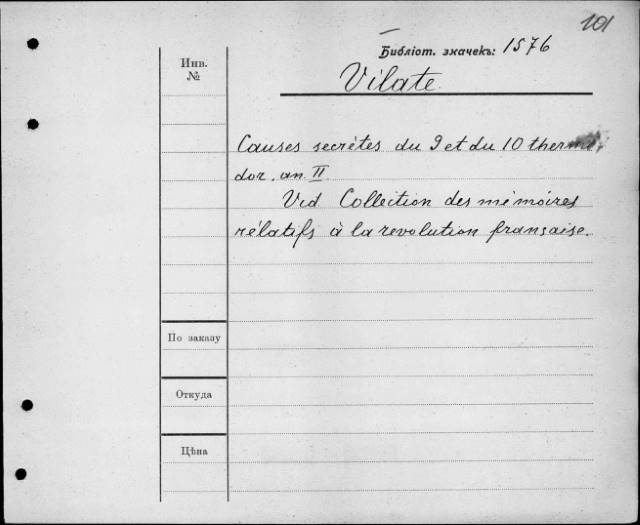 101
Библіот. значекъ: 1576
Инв.
№
Vilate
Causes secrètes du 9 et du 10 thermi,
dor. an II
Vid Collection des mémoires
rélatifs à la revolution française.
По заказу
Откуда
Цѣна